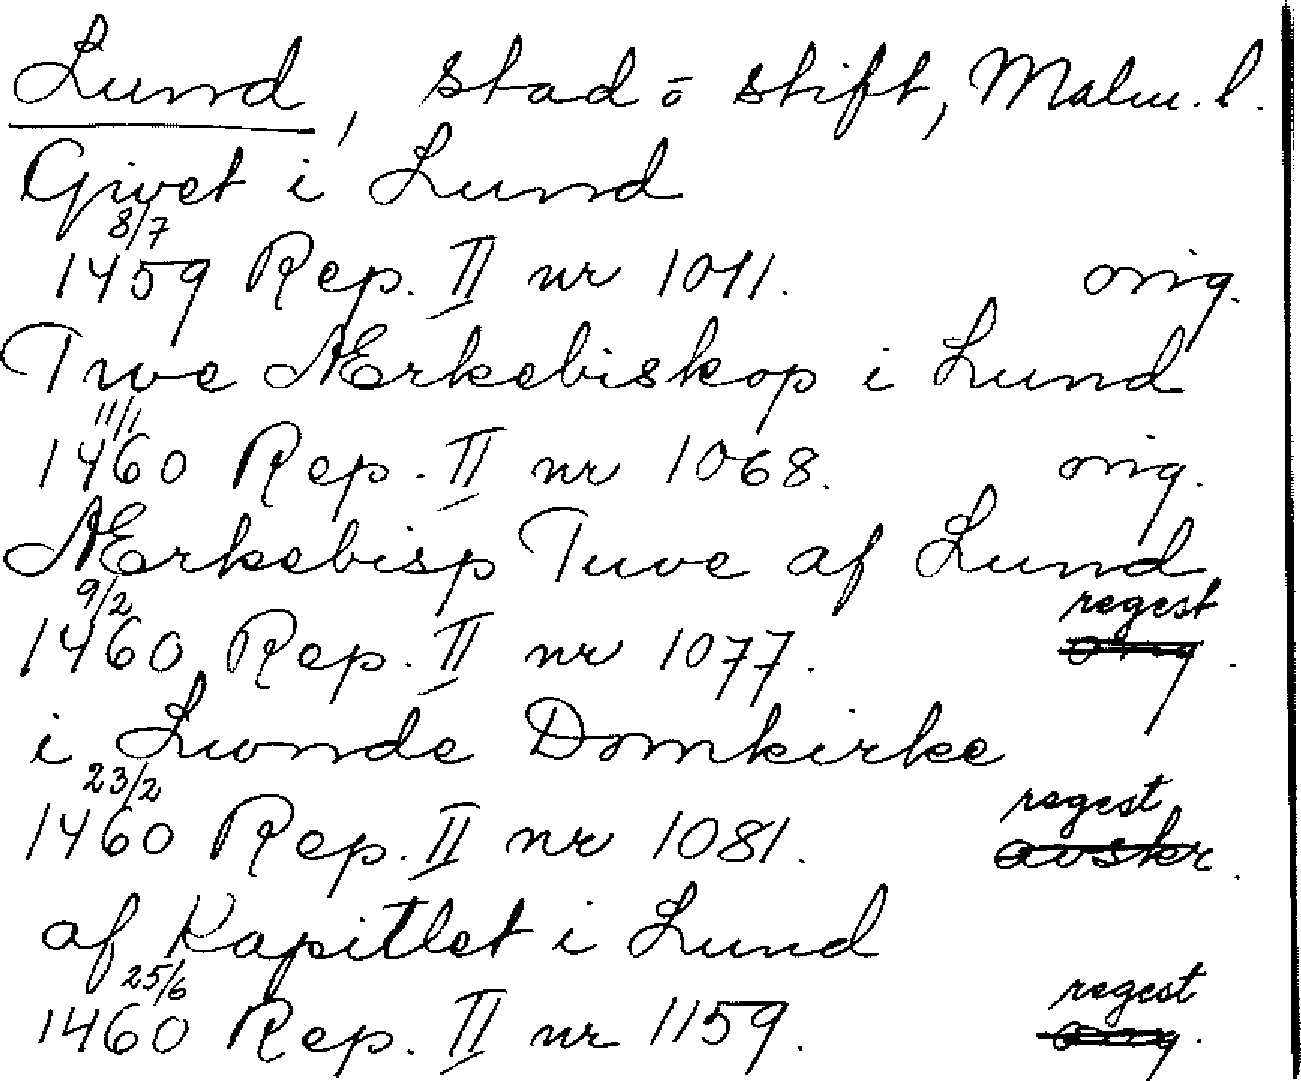 Lund, stad o stift, Malm. l.
Givet i Lund
8/7
1459 Rep. II nr 1011. orig.
Tuve Ærkebiskop i Lund
11/1
1460 Rep. II nr 1068. orig.
Ærkebisp Tuve af Lund
9/2 regest
1460 Rep. II nr 1077. orig.
i Lunde Domkirke
23/2 regest
1460 Rep. II nr 1081. avskr.
af Kapitlet i Lund
25/6 regest
1460 Rep. II nr 1159. orig.